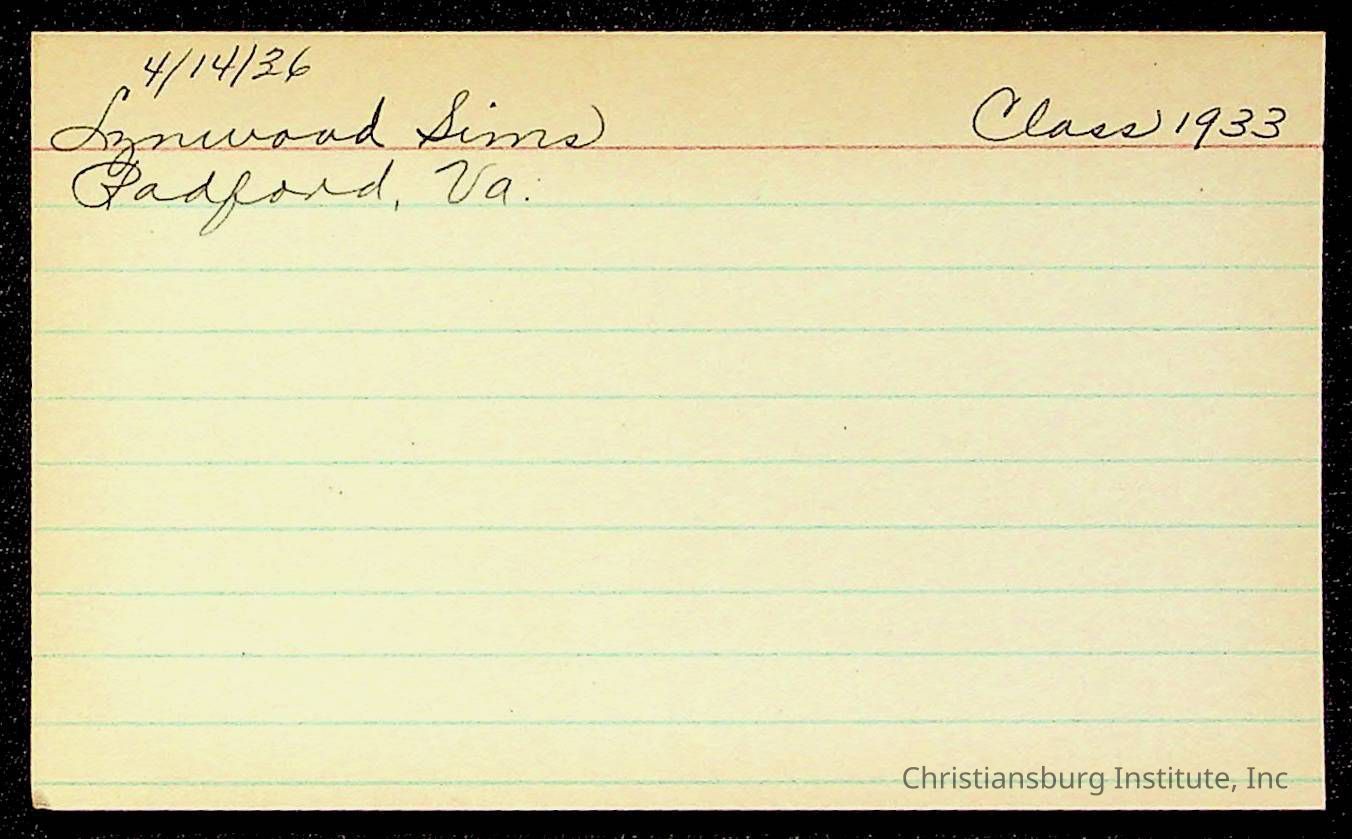 4/14/36
Lynwood Sims Class 1933
Radford, Va.
Christiansburg Institute, Inc